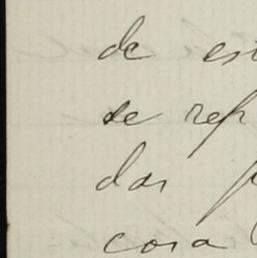 de es
se ref
das p
cosa